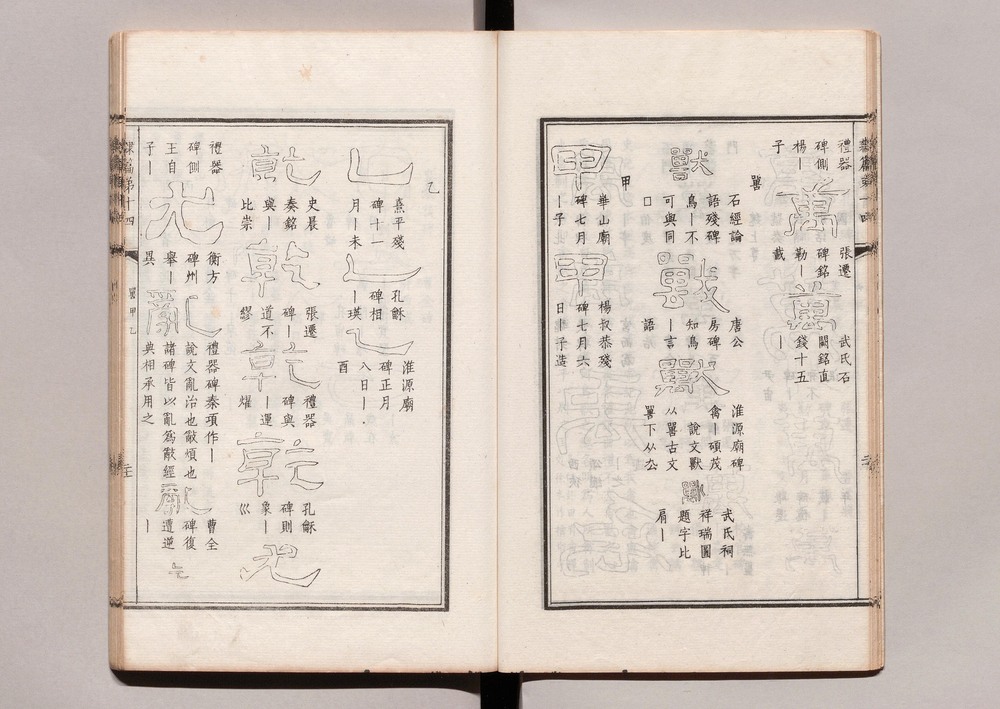 禮器
碑側
楊丨
子
萬
張遷
碑銘
勒丨
戴
萬
武氏石
闕銘直
錢十五
丨
嘼
獸
石經論
語殘碑
鳥丨不
可與同
口
獸
唐公
房碑
知鳥
丨言
語
獸
淮源廟碑
禽丨碩茂
說文獸
从嘼古文
嘼下从厹
獸
武氏祠
祥瑞圖
題字比
肩丨
甲
甲
華山廟
碑七月
丨子
甲
楊叔恭殘
碑七月六
日丨子造
乙
乙
熹平殘
碑十一
月丨未
乙
孔龢
碑相
丨瑛
乙
淮源廟
碑正月
八日丨
酉
乾
史晨
奏銘
與丨
比崇
乾
張遷
碑丨
道不
繆
乾
禮器
碑與
丨運
燿
乾
孔龢
碑則
象丨
巛
尤
禮器
碑側
王自
子丨
尤
衡方
碑州
舉丨
異
亂
禮器碑秦項作丨
說文亂治也𢿢煩也
諸碑皆以亂爲𢿢經
典相承用之
亂
曹全
碑復
遭逆
丨
隸篇第十四
嘼甲乙
二十